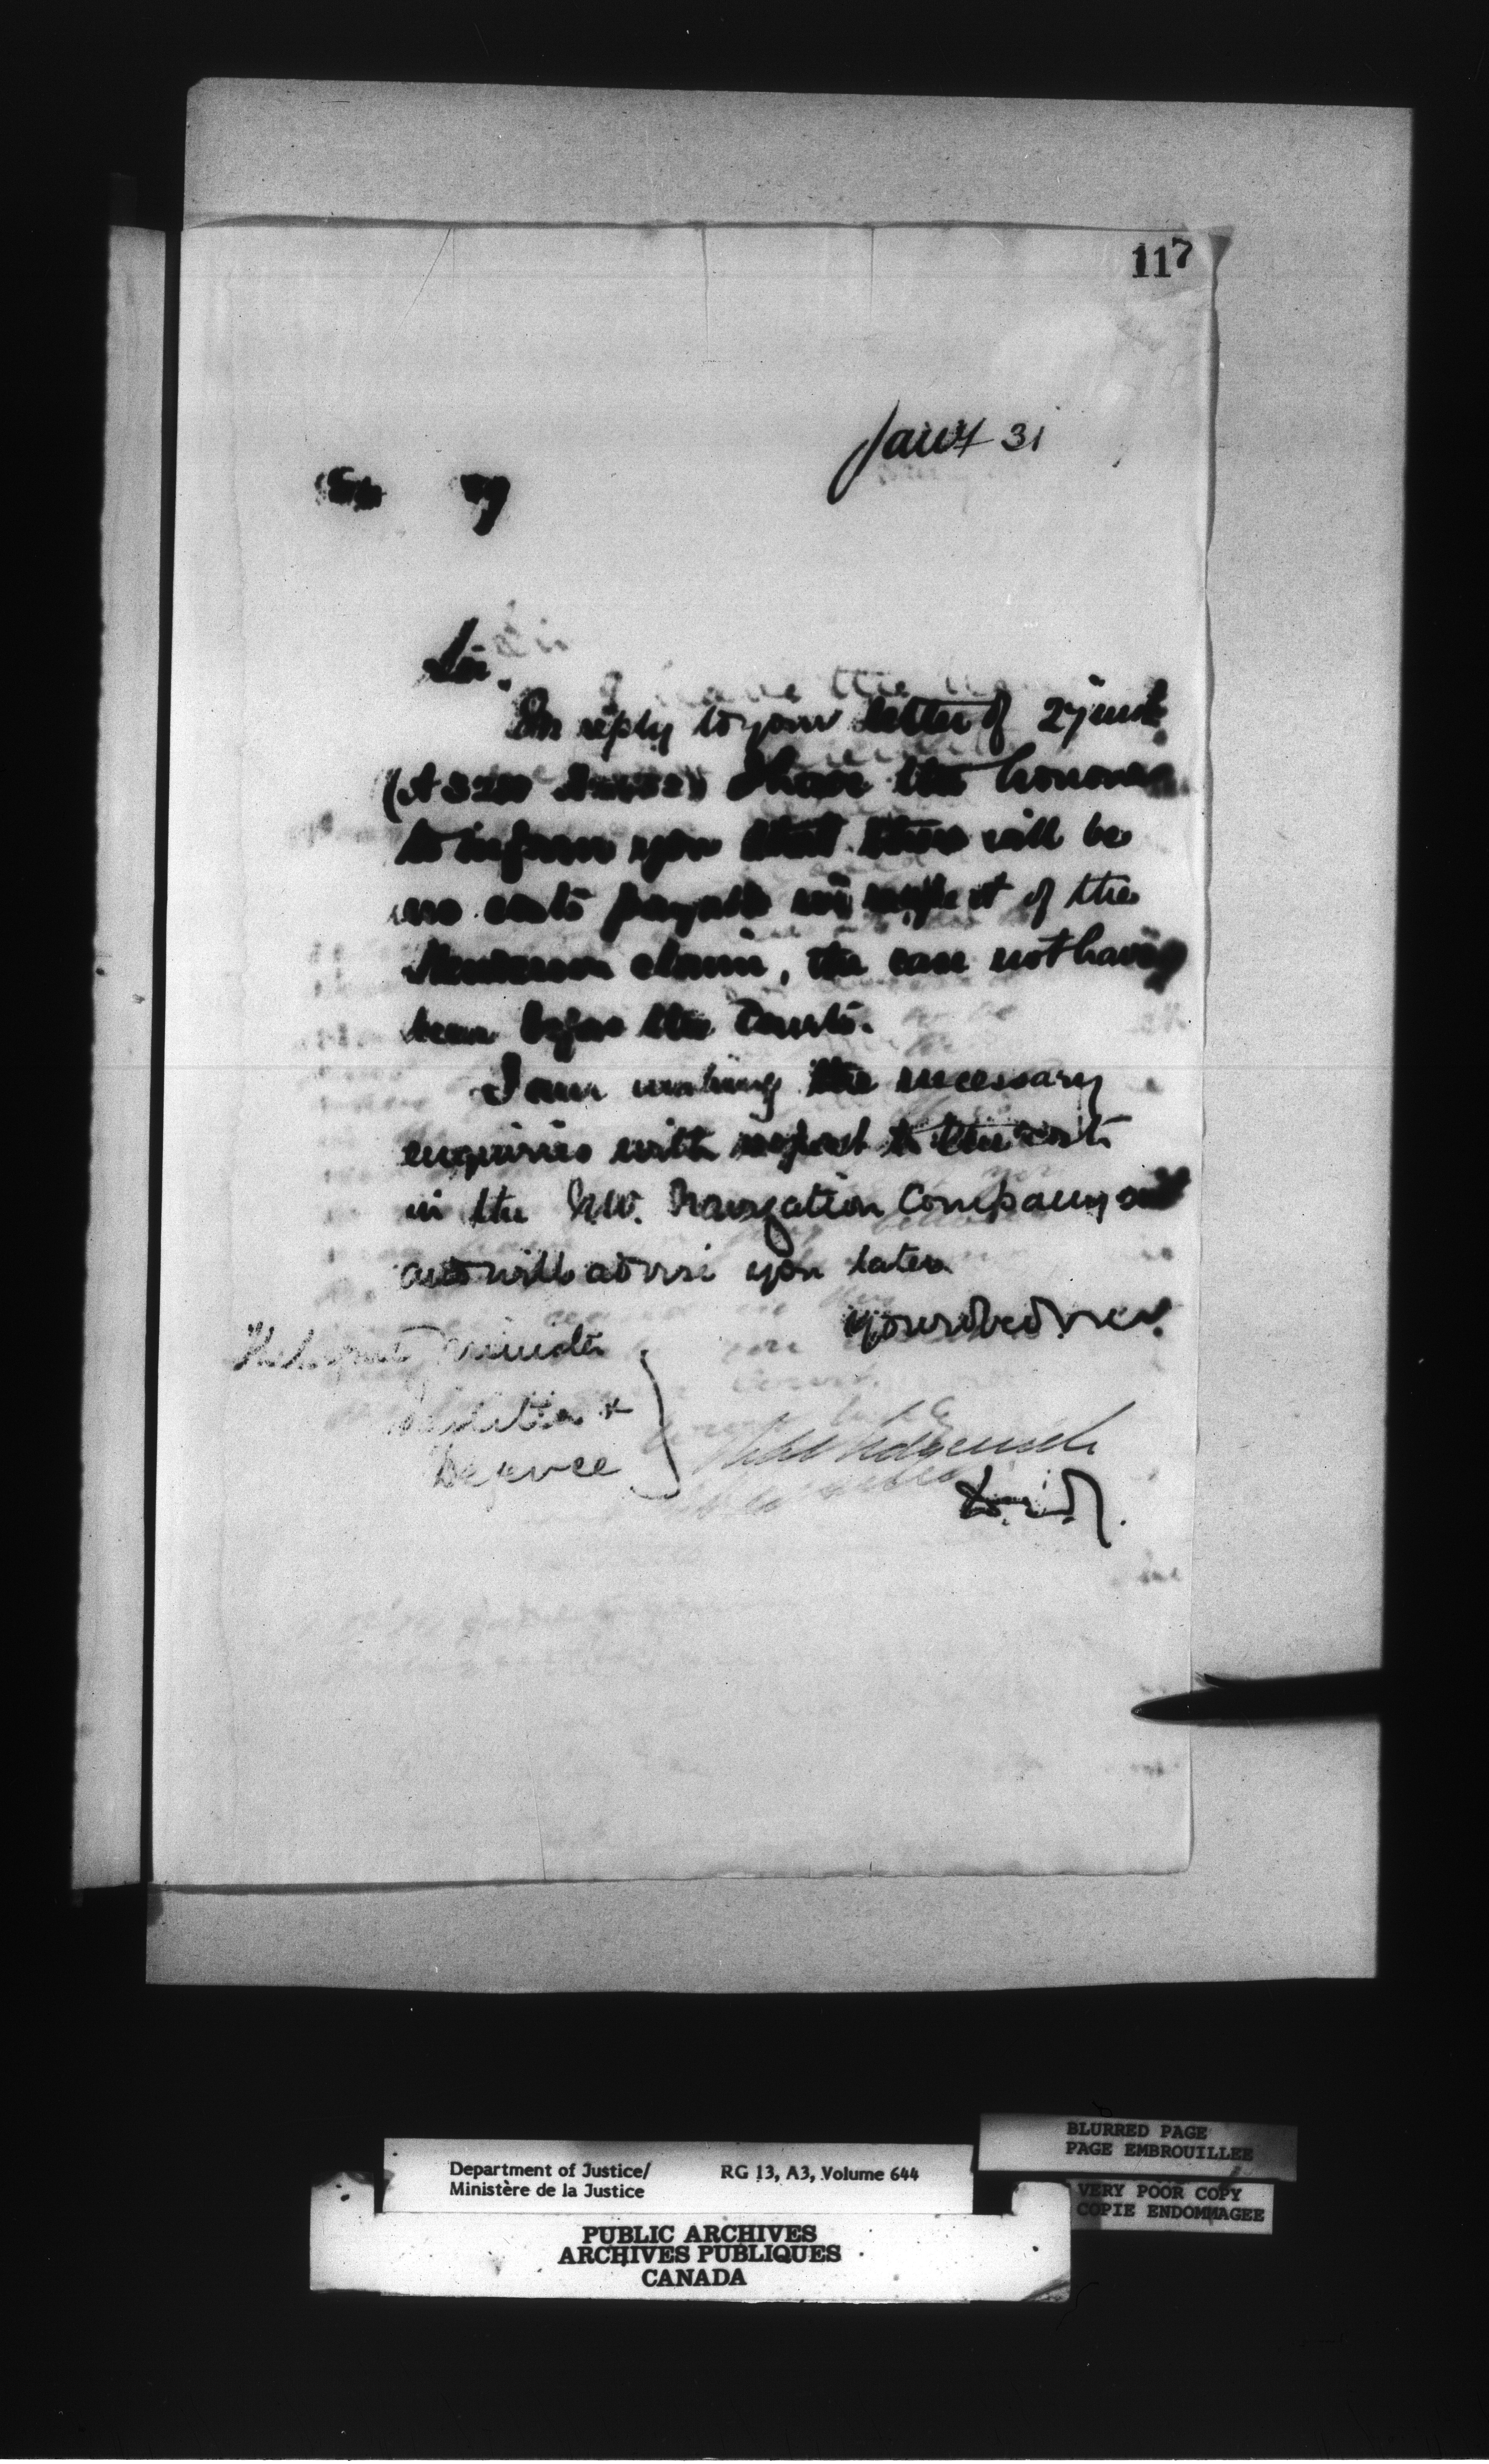 117
Jany 31
Sir.
In reply to your letter of 27 inst.
I have the honour
to inform you that there will be
no costs payable in respect of the
claim, the case not having
been before the Courts.
I am making the necessary
enquiries with respect to the costs
in the N.W. Navigation Company suit
and will advise you later.
Your obed. serv.
Minister
Militia &
Defence
Robt Sedgewick
D.M.J.
BLURRED PAGE
PAGE EMBROUILLEE
VERY POOR COPY
COPIE ENDOMMAGEE
Department of Justice/ RG 13, A3, Volume 644
Ministère de la Justice
PUBLIC ARCHIVES
ARCHIVES PUBLIQUES
CANADA